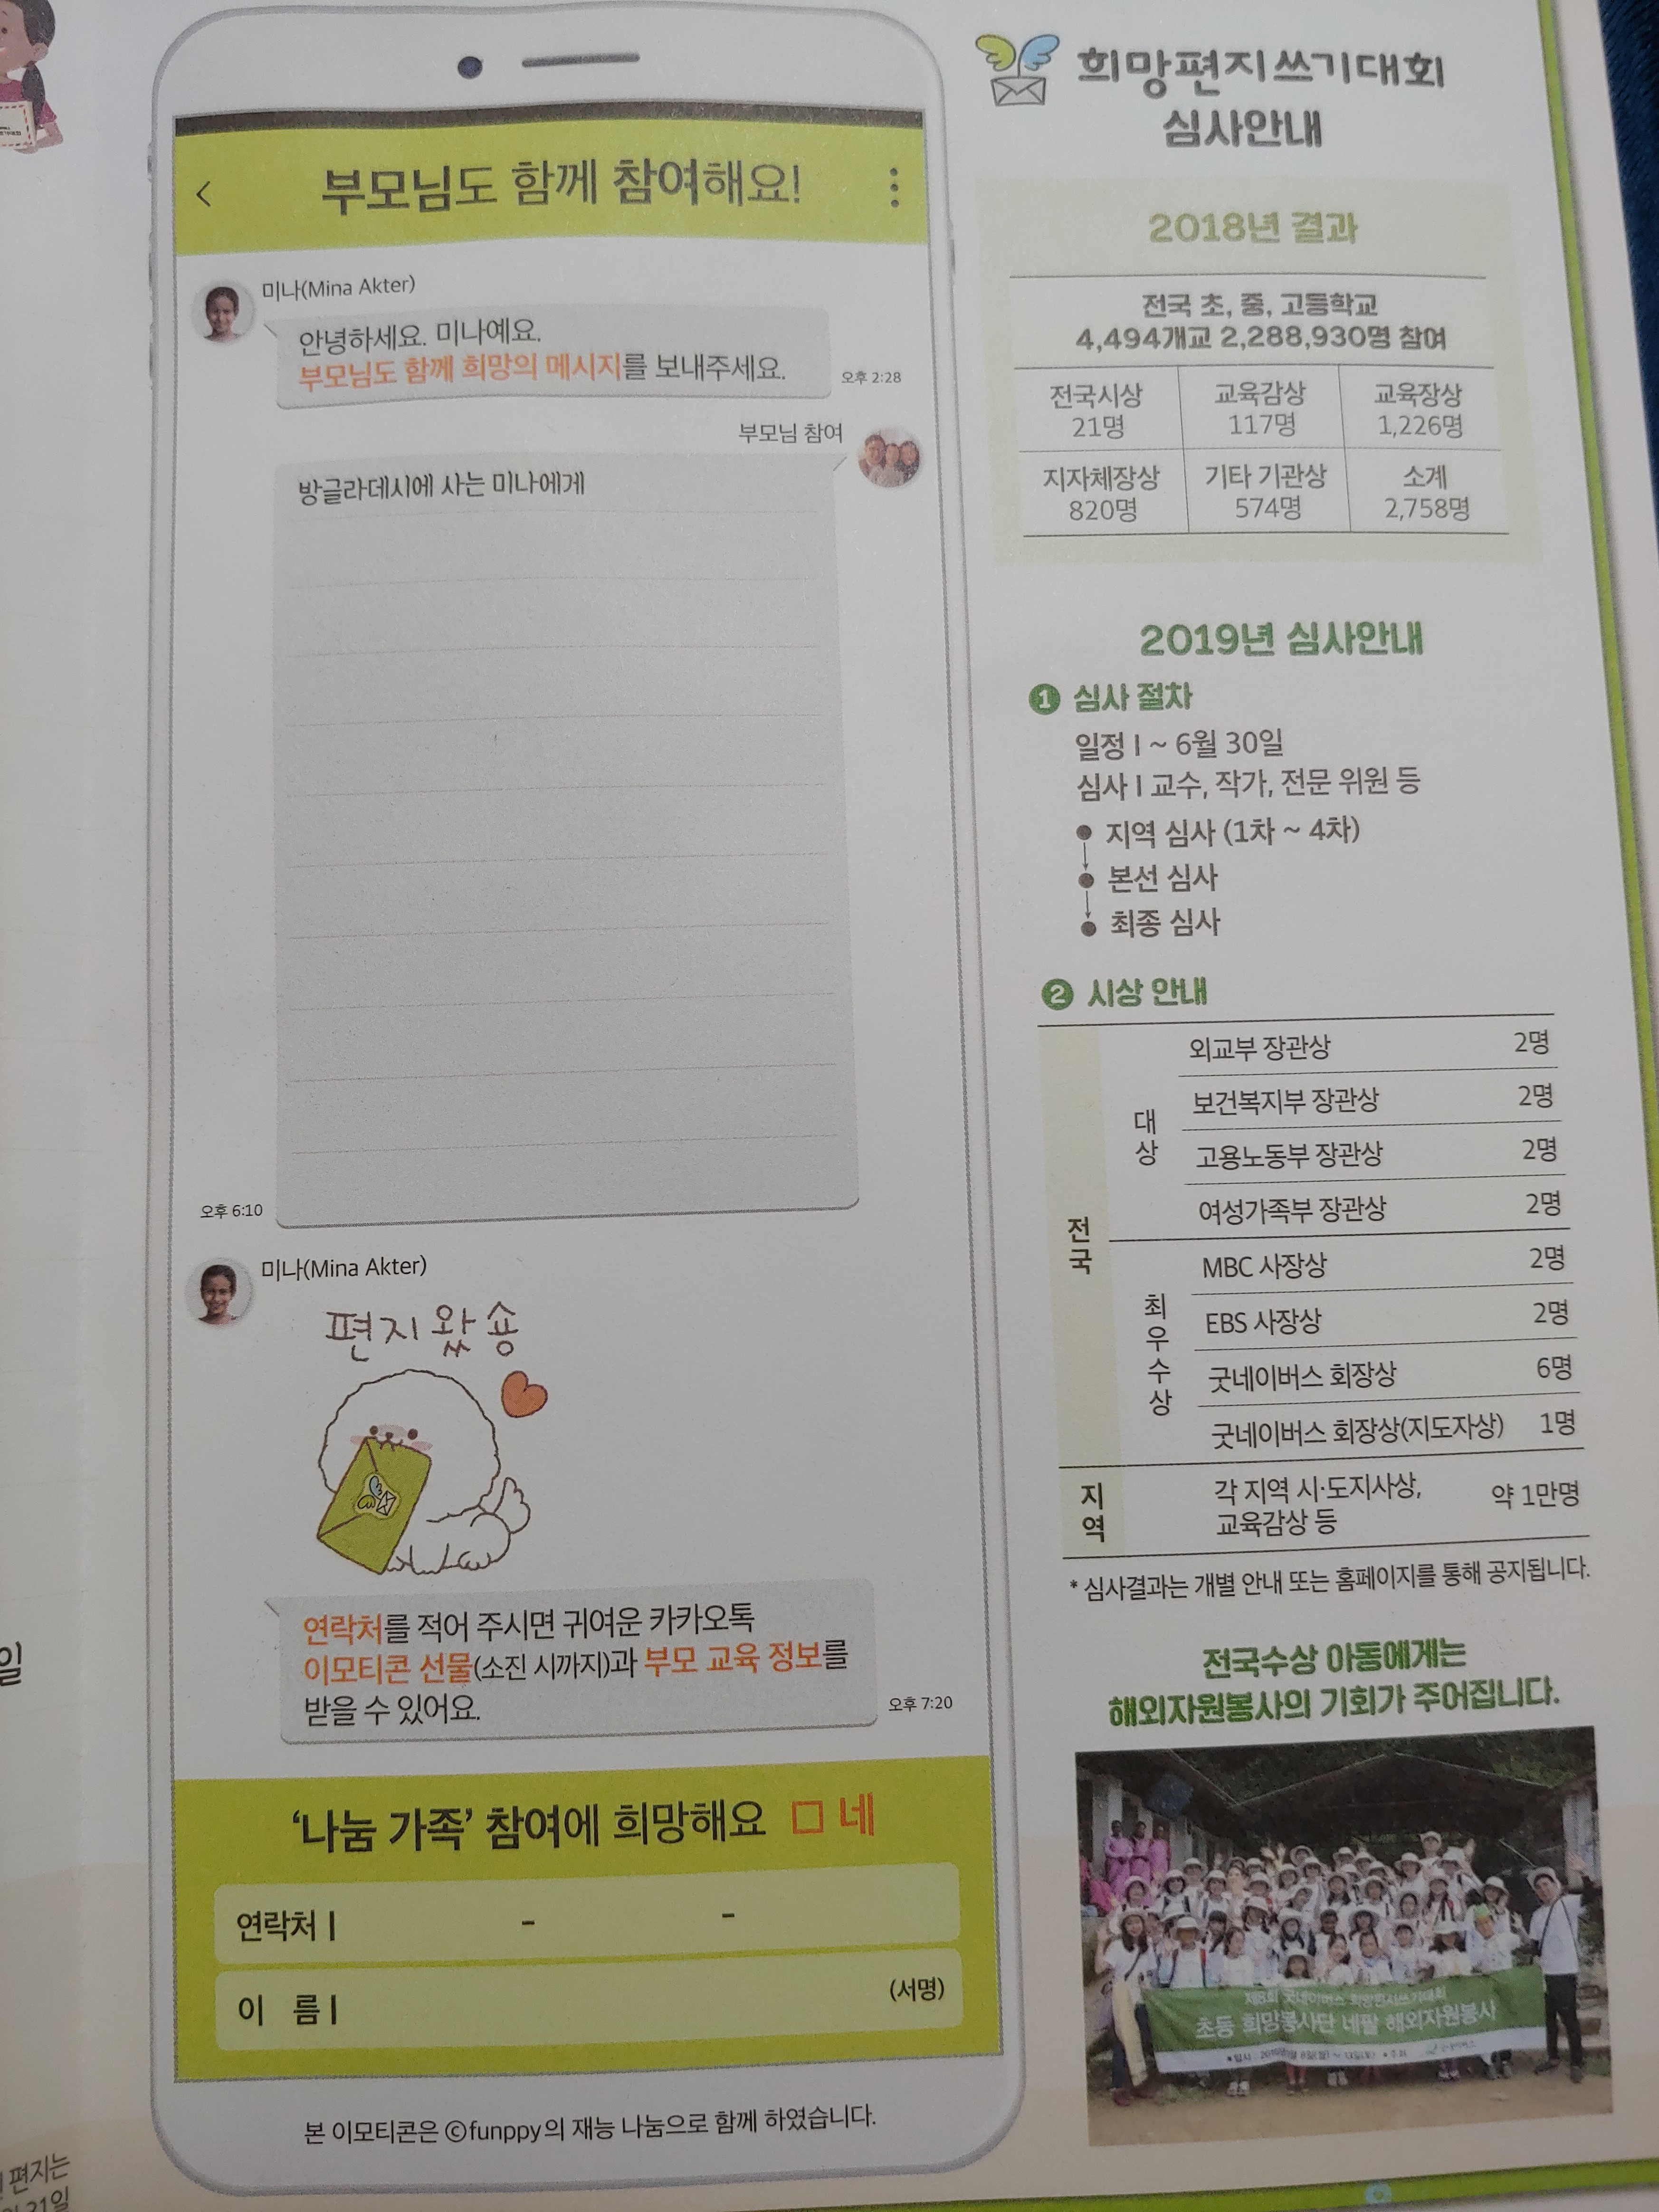 부모님도 함께 참여해요!
미나(Mina Akter)
안녕하세요. 미나예요.
부모님도 함께 희망의 메시지를 보내주세요.
오후 2:28
부모님 참여
방글라데시에 사는 미나에게
오후 6:10
미나(Mina Akter)
편지 왔숑
연락처를 적어 주시면 귀여운 카카오톡
이모티콘 선물(소진 시까지)과 부모 교육 정보를
받을 수 있어요.
오후 7:20
‘나눔 가족’ 참여에 희망해요 □ 네
연락처 | - -
이 름 | (서명)
본 이모티콘은 ©funppy의 재능 나눔으로 함께 하였습니다.
희망편지쓰기대회
심사안내
2018년 결과
전국 초, 중, 고등학교
4,494개교 2,288,930명 참여
전국시상 교육감상 교육장상
21명 117명 1,226명
지자체장상 기타 기관상 소계
820명 574명 2,758명
2019년 심사안내
1 심사 절차
일정 | ~ 6월 30일
심사 | 교수, 작가, 전문 위원 등
지역 심사 (1차 ~ 4차)
본선 심사
최종 심사
2 시상 안내
전국
대상
외교부 장관상 2명
보건복지부 장관상 2명
고용노동부 장관상 2명
여성가족부 장관상 2명
최우수상
MBC 사장상 2명
EBS 사장상 2명
굿네이버스 회장상 6명
굿네이버스 회장상(지도자상) 1명
지역
각 지역 시·도지사상, 약 1만명
교육감상 등
* 심사결과는 개별 안내 또는 홈페이지를 통해 공지됩니다.
전국수상 아동에게는
해외자원봉사의 기회가 주어집니다.
제8회 굿네이버스 희망편지쓰기대회
초등 희망봉사단 네팔 해외자원봉사
일
편지는
21일